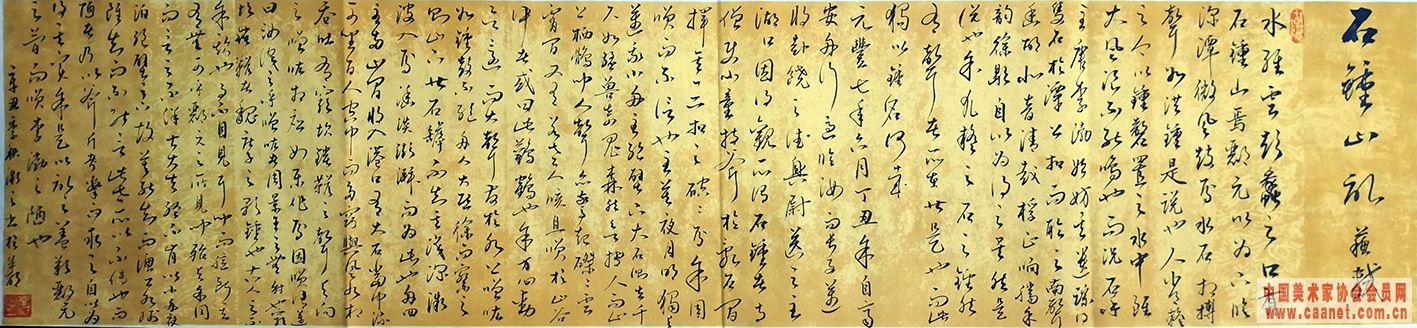 石鐘山記 蘇軾
水經云彭蠡之口有
石鐘山焉酈元以為下臨
深潭微風鼓浪水石相搏
聲如洪鐘是說也人常疑
之今以鐘磬置之水中雖
大風浪不能鳴也而況石乎
至唐李渤始訪其遺踪得
雙石於潭上扣而聆之南聲
函胡北音清越桴止響騰餘
韻徐歇自以為得之矣然是
說也余尤疑之石之鏗然
有聲者所在皆是也而此
獨以鐘名何哉
元豐七年六月丁丑余自齊
安舟行適臨汝而長子邁
將赴饒之德興尉送之至
湖口因得觀所謂石鐘者寺
僧使小童持斧於亂石間
擇其一二扣之硿硿焉余固
笑而不信也至莫夜月明獨與
邁乘小舟至絕壁下大石側立千
尺如猛獸奇鬼森然欲搏人而山
上栖鶻聞人聲亦驚起磔磔雲
霄間又有若老人咳且笑於山谷
中者或曰此鸛鶴也余方心動
欲還而大聲發於水上噌吰
如鐘鼓不絕舟人大恐徐而察之
則山下皆石穴罅不知其淺深微
波入焉涵淡澎湃而為此也舟回
至兩山間將入港口有大石當中流
可坐百人空中而多竅與風水相
吞吐有窾坎鏜鞳之聲與向
之噌吰相應如樂作焉因笑謂邁
曰汝識之乎噌吰者周景王之無射也窾
坎鏜鞳者魏莊子之歌鐘也古之人不
余欺也事不目見耳聞而臆斷其
有無可乎酈元之所見聞殆與余同
而言之不詳士大夫終不肯以小舟夜
泊絕壁之下故莫能知而漁工水師
雖知而不能言此世所以不傳也而
陋者乃以斧斤考擊而求之自以為
得其實余是以記之蓋歎酈元
之簡而笑李渤之陋也
辛丑季秋
中国美术家协会会员网
www.caanet.com.cn